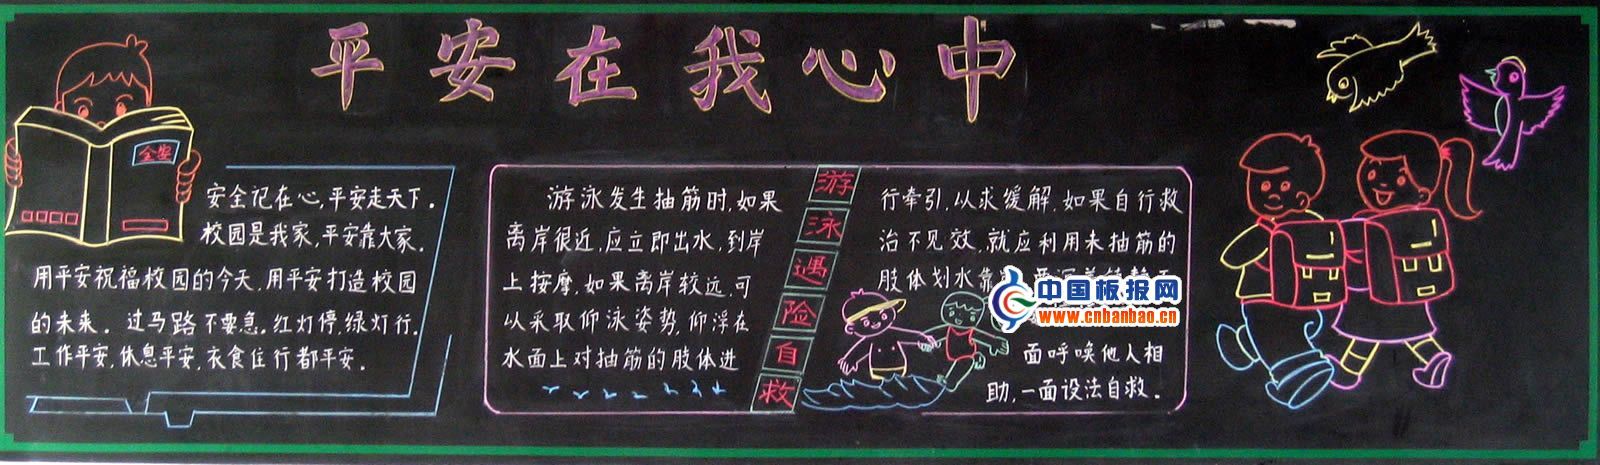 平安在我心中
全安
安全记在心,平安走天下.
校园是我家,平安靠大家.
用平安祝福校园的今天,用平安打造校园
的未来. 过马路不要急,红灯停,绿灯行.
工作平安,休息平安,衣食住行都平安.
游泳发生抽筋时,如果
离岸很近,应立即出水,到岸
上按摩,如果离岸较远,可
以采取仰泳姿势,仰浮在
水面上对抽筋的肢体进
游泳遇险自救
行牵引,以求缓解,如果自行救
治不见效,就应利用未抽筋的
肢体划水靠
面呼唤他人相
助,一面设法自救.
中国板报网
www.cnbanbao.cn